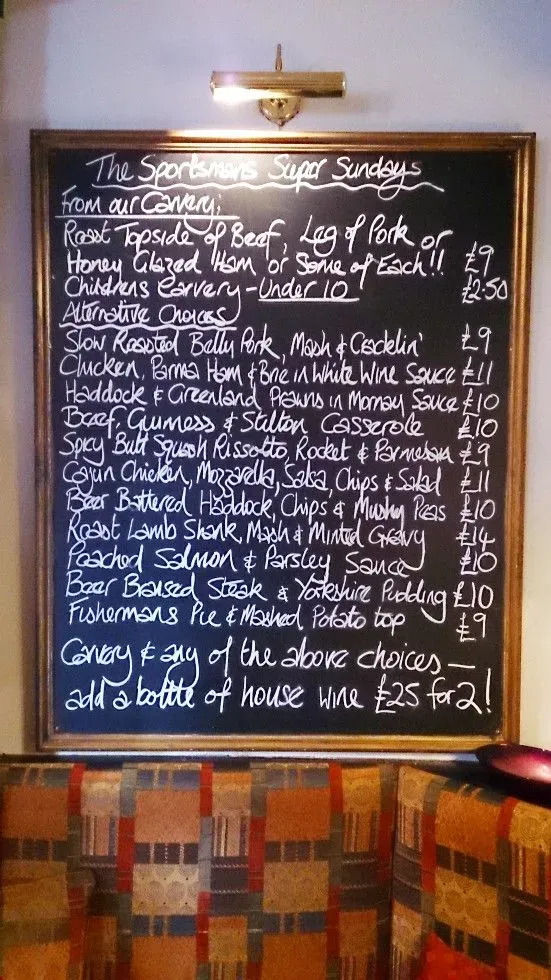 The Sportsmans Super Sundays
From our Carvery;
Roast Topside of Beef, Leg of Pork or
Honey Glazed Ham or Some of Each!! £9
Childrens Carvery - Under 10 £2.50
Alternative Choices
Slow Roasted Belly Pork, Mash & Cracklin' £9
Chicken, Parma Ham & Brie in White Wine Sauce £11
Haddock & Greenland Prawns in Mornay Sauce £10
Beef, Guiness & Stilton Casserole £10
Spicy Butt Squash Rissotto, Rocket & Parmesan £9
Cajun Chicken, Mozzarella, Salsa, Chips & Salad £11
Beer Battered Haddock, Chips & Mushy Peas £10
Roast Lamb Shank, Mash & Minted Gravy £14
Poached Salmon & Parsley Sauce £10
Beer Braised Steak & Yorkshire Pudding £10
Fishermans Pie & Mashed Potato top £9
Carvery & any of the above choices —
add a bottle of house wine £25 for 2!